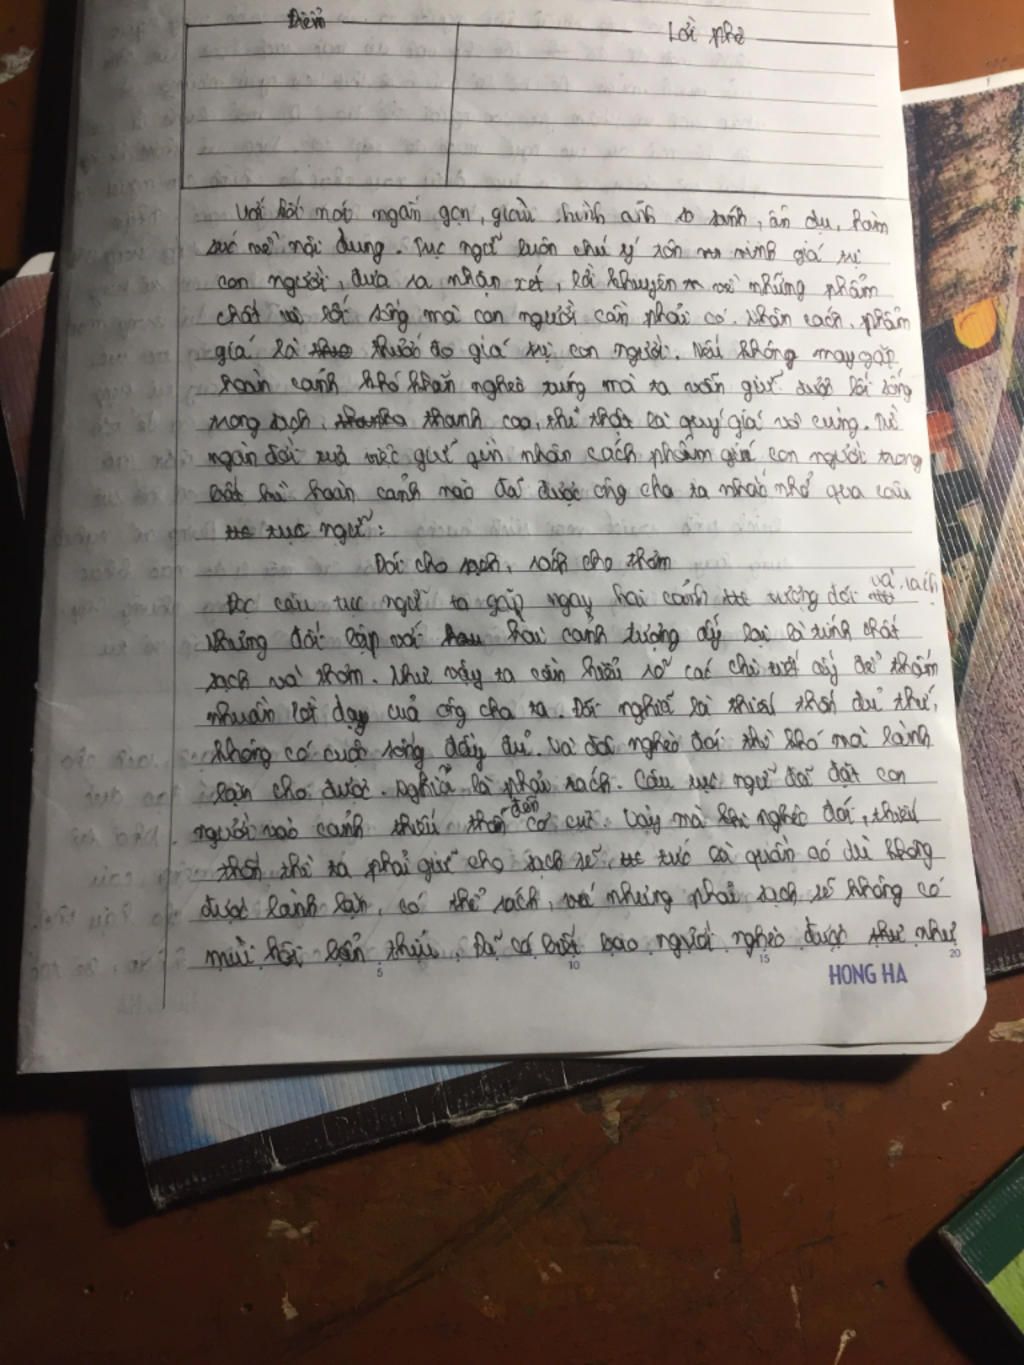 Điểm
Lời phê
Với lời nói ngắn gọn, giàu hình ảnh so sánh, ẩn dụ, hàm
súc về nội dung. Tục ngữ luôn chú ý tôn vinh giá trị
con người, đưa ra nhận xét, lời khuyên về những phẩm
chất và lối sống mà con người cần phải có. Nhân cách, phẩm
giá là thước đo giá trị con người. Nếu không may gặp
hoàn cảnh khó khăn nghèo túng mà ta vẫn giữ được lối sống
trong sạch, thanh cao, thì thật là quý giá vô cùng. Từ
ngàn đời xưa việc giữ gìn nhân cách phẩm giá con người trong
bất kì hoàn cảnh nào đã được ông cha ta nhắc nhở qua câu
tục ngữ:
Đói cho sạch, rách cho thơm
Đọc câu tục ngữ ta gặp ngay hai cảnh tượng đói và rách
Nhưng đối lập với hai cảnh tượng ấy lại là tính chất
sạch và thơm. Như vậy ta cần hiểu rõ các chi tiết ấy để thấm
nhuần lời dạy của ông cha ta. Đói nghĩa là thiếu thốn đủ thứ,
không có cuộc sống đầy đủ. Và đã nghèo đói thì khó mà lành
lặn cho được. Nghĩa là phải rách. Câu tục ngữ đã đặt con
người vào cảnh thiếu thốn đến cơ cực. Vậy mà khi nghèo đói, thiếu
thốn thì ta phải giữ cho sạch sẽ, tức là quần áo dù không
được lành lặn, có thể rách, vá nhưng phải sạch sẽ không có
mùi hôi bẩn thỉu. Đã có biết bao người nghèo được như
5 10 15 20
HONG HA